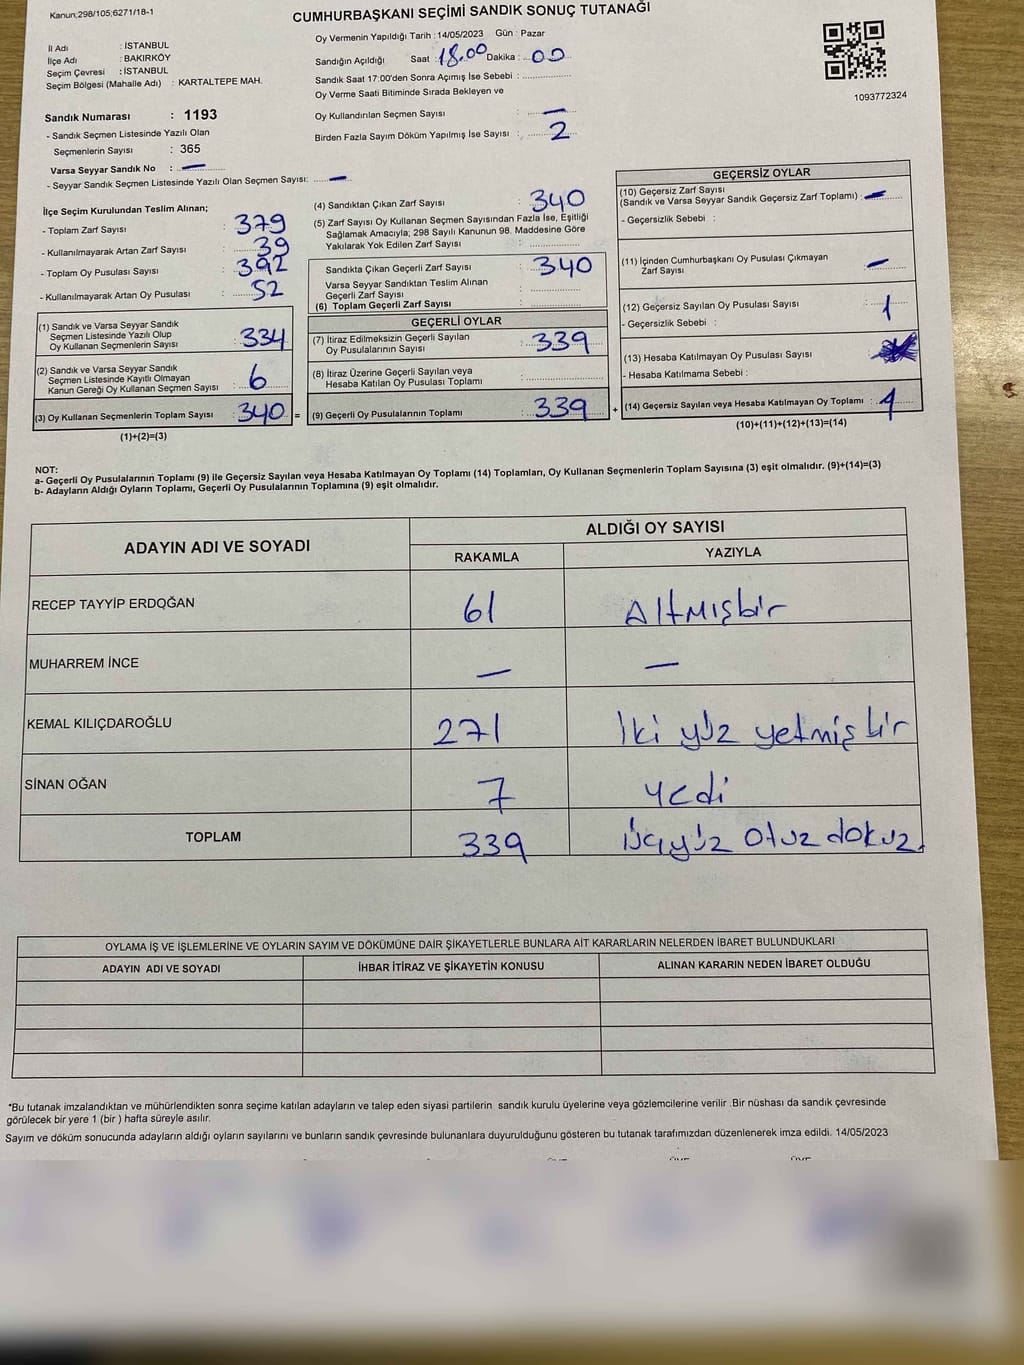 Kanun;298/105;6271/18-1
CUMHURBAŞKANI SEÇİMİ SANDIK SONUÇ TUTANAĞI
İl Adı : İSTANBUL
İlçe Adı : BAKIRKÖY
Seçim Çevresi : İSTANBUL
Seçim Bölgesi (Mahalle Adı) : KARTALTEPE MAH.
Sandık Numarası : 1193
- Sandık Seçmen Listesinde Yazılı Olan
Seçmenlerin Sayısı : 365
Varsa Seyyar Sandık No : —
- Seyyar Sandık Seçmen Listesinde Yazılı Olan Seçmen Sayısı: —
Oy Vermenin Yapıldığı Tarih : 14/05/2023 Gün : Pazar
Sandığın Açıldığı Saat : 18.00 Dakika : 00
Sandık Saat 17:00'den Sonra Açımış İse Sebebi :
Oy Verme Saati Bitiminde Sırada Bekleyen ve
Oy Kullandırılan Seçmen Sayısı : —
Birden Fazla Sayım Döküm Yapılmış İse Sayısı : 2
1093772324
İlçe Seçim Kurulundan Teslim Alınan;
- Toplam Zarf Sayısı : 379
- Kullanılmayarak Artan Zarf Sayısı : 39
- Toplam Oy Pusulası Sayısı : 392
- Kullanılmayarak Artan Oy Pusulası : 52
(1) Sandık ve Varsa Seyyar Sandık
Seçmen Listesinde Yazılı Olup
Oy Kullanan Seçmenlerin Sayısı : 334
(2) Sandık ve Varsa Seyyar Sandık
Seçmen Listesinde Kayıtlı Olmayan
Kanun Gereği Oy Kullanan Seçmen Sayısı : 6
(3) Oy Kullanan Seçmenlerin Toplam Sayısı : 340 =
(1)+(2)=(3)
(4) Sandıktan Çıkan Zarf Sayısı : 340
(5) Zarf Sayısı Oy Kullanan Seçmen Sayısından Fazla İse, Eşitliği
Sağlamak Amacıyla; 298 Sayılı Kanunun 98. Maddesine Göre
Yakılarak Yok Edilen Zarf Sayısı :
Sandıkta Çıkan Geçerli Zarf Sayısı : 340
Varsa Seyyar Sandıktan Teslim Alınan
Geçerli Zarf Sayısı :
(6) Toplam Geçerli Zarf Sayısı :
GEÇERLİ OYLAR
(7) İtiraz Edilmeksizin Geçerli Sayılan
Oy Pusulalarının Sayısı : 339
(8) İtiraz Üzerine Geçerli Sayılan veya
Hesaba Katılan Oy Pusulası Toplamı :
(9) Geçerli Oy Pusulalarının Toplamı : 339 +
GEÇERSİZ OYLAR
(10) Geçersiz Zarf Sayısı
(Sandık ve Varsa Seyyar Sandık Geçersiz Zarf Toplamı) : —
- Geçersizlik Sebebi :
(11) İçinden Cumhurbaşkanı Oy Pusulası Çıkmayan
Zarf Sayısı : —
(12) Geçersiz Sayılan Oy Pusulası Sayısı : 1
- Geçersizlik Sebebi :
(13) Hesaba Katılmayan Oy Pusulası Sayısı
- Hesaba Katılmama Sebebi :
(14) Geçersiz Sayılan veya Hesaba Katılmayan Oy Toplamı : 1
(10)+(11)+(12)+(13)=(14)
NOT:
a- Geçerli Oy Pusulalarının Toplamı (9) ile Geçersiz Sayılan veya Hesaba Katılmayan Oy Toplamı (14) Toplamları, Oy Kullanan Seçmenlerin Toplam Sayısına (3) eşit olmalıdır. (9)+(14)=(3)
b- Adayların Aldığı Oyların Toplamı, Geçerli Oy Pusulalarının Toplamına (9) eşit olmalıdır.
ADAYIN ADI VE SOYADI ALDIĞI OY SAYISI
RAKAMLA YAZIYLA
RECEP TAYYİP ERDOĞAN 61 Altmışbir
MUHARREM İNCE — —
KEMAL KILIÇDAROĞLU 271 İki yüz yetmiş bir
SİNAN OĞAN 7 yedi
TOPLAM 339 üçyüz otuz dokuz.
OYLAMA İŞ VE İŞLEMLERİNE VE OYLARIN SAYIM VE DÖKÜMÜNE DAİR ŞİKAYETLERLE BUNLARA AİT KARARLARIN NELERDEN İBARET BULUNDUKLARI
ADAYIN ADI VE SOYADI İHBAR İTİRAZ VE ŞİKAYETİN KONUSU ALINAN KARARIN NEDEN İBARET OLDUĞU
*Bu tutanak imzalandıktan ve mühürlendikten sonra seçime katılan adayların ve talep eden siyasi partilerin sandık kurulu üyelerine veya gözlemcilerine verilir .Bir nüshası da sandık çevresinde
görülecek bir yere 1 (bir ) hafta süreyle asılır.
Sayım ve döküm sonucunda adayların aldığı oyların sayılarını ve bunların sandık çevresinde bulunanlara duyurulduğunu gösteren bu tutanak tarafımızdan düzenlenerek imza edildi. 14/05/2023